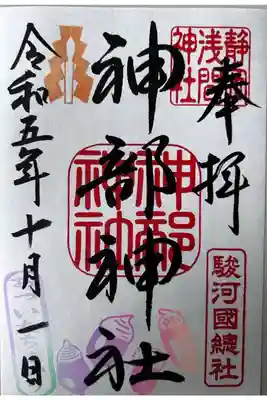 奉拝
静岡
浅間
神社
駿河國總社
神部神社
神部
神社
令和五年十月一日